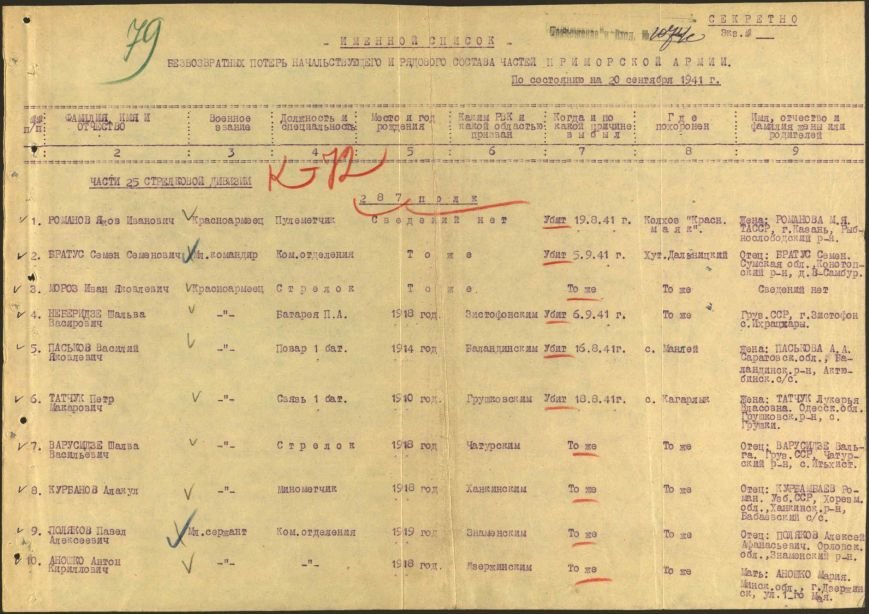 СЕКРЕТНО
79
"Вход. № 1074с
Экз.№
- ИМЕННОЙ СПИСОК -
БЕЗВОЗВРАТНЫХ ПОТЕРЬ НАЧАЛЬСТВУЮЩЕГО И РЯДОВОГО СОСТАВА ЧАСТЕЙ ПРИМОРСКОЙ АРМИИ.
По состоянию на 20 сентября 1941 г.
№№ п/п ФАМИЛИЯ, ИМЯ И ОТЧЕСТВО Военное звание Должность и специальность Место и год рождения Каким РВК и какой областью призван Когда и по какой причине выбыл Где похоронен Имя, отчество и фамилия жены или родителей
1. 2 3 4 5 6 7 8 9
ЧАСТИ 25 СТРЕЛКОВОЙ ДИВИЗИИ К-72
287 полк
1. РОМАНОВ Яков Иванович Красноармеец Пулеметчик Сведений нет Убит 19.8.41 г. Колхоз "Красн. маяк". Жена: РОМАНОВА М.Я.
ТАССР, г.Казань, Рыб-
нослободский р-н.
2. БРАТУС Семен Семенович Мл.командир Ком.отделения То же Убит 5.9.41 г. Хут.Дальницкий Отец: БРАТУС Семен.
Сумская обл., Конотоп-
ский р-н, д.В-Самбур.
3. МОРОЗ Иван Яковлевич Красноармеец Стрелок То же. То же То же Сведений нет
4. НЕБЕРИДЗЕ Шальва Васирович -"- Батарея П.А. 1918 год. Зистофонским Убит 6.9.41 г. То же Груз.ССР, г.Зистофон
5. ПАСЬКОВ Василий Яковлевич -"- Повар 1 бат. 1914 год Баландинским Убит 16.8.41г. с. Манлей Жена: ПАСЬКОВА А.А.
Саратовск.обл., Ба-
ландинск.р-н, Актю-
бинск.с/с.
6. ТАТЧУК Петр Макарович -"- Связь 1 бат. 1910 год. Грушковским Убит 18.8.41г. с. Кагарлык Жена: ТАТЧУК Лукерья
Власовна. Одесск.обл.
Грушковск.р-н, с.
Грушки.
7. ВАРУСИДЗЕ Шалва Васильевич -"- Стрелок 1918 год Чатурским То же То же Отец: ВАРУСИДЗЕ Валь-
га. Груз.ССР, Чатур-
ский р-н,
8. КУРБАНОВ Адакул -"- Минометчик 1918 год Ханкинским То же То же Отец: КУРБАМБАЕВ Ро-
ман. Узб.ССР, Хорезм.
обл.,Ханкинск.р-н,
Бабаевский с/с.
9. ПОЛЯКОВ Павел Алексеевич Мл.сержант Ком.отделения 1919 год Знаменским То же То же Отец: ПОЛЯКОВ Алексей
Афанасьевич. Орловск.
обл.,Знаменский р-н.
10. АНОШКО Антон Кириллович -"- -"- 1918 год. Дзержинским То же То же Мать: АНОШКО Мария.
Минск.обл., г.Дзержин
ск, ул.1-го Мая.